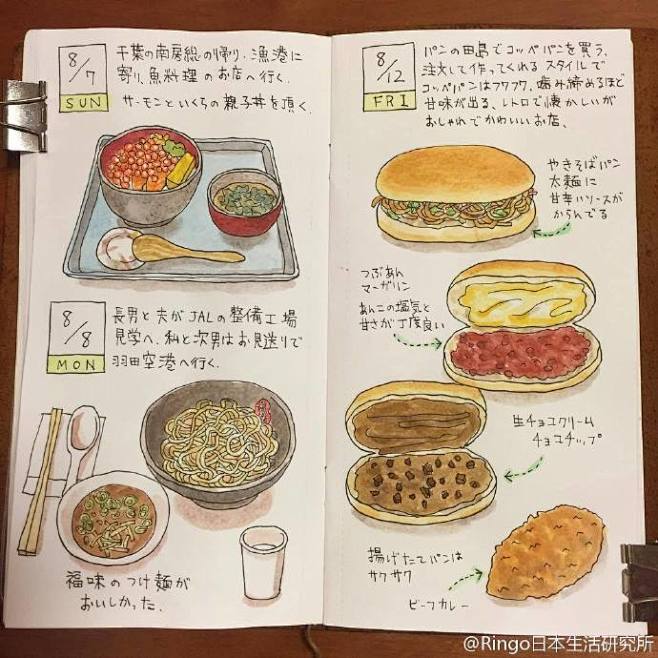 8/7
SUN
千葉の南房総の帰り、漁港に
寄り、魚料理のお店へ行く。
サーモンといくらの親子丼を頂く。
8/8
MON
長男と夫がJALの整備工場
見学へ、私と次男はお見送りで
羽田空港へ行く。
福味のつけ麺が
おいしかった。
8/12
FRI
パンの田島でコッペパンを買う。
注文して作ってくれるスタイルで
コッペパンはフワフワ。噛み締めるほど
甘味が出る、レトロで懐かしいが
おしゃれでかわいいお店。
やきそばパン
太麺に
甘辛いソースが
からんでる
つぶあん
マーガリン
あんこの塩気と
甘さが丁度良い
生チョコクリーム
チョコチップ
揚げたてパンは
サクサク
ビーフカレー
@Ringo日本生活研究所